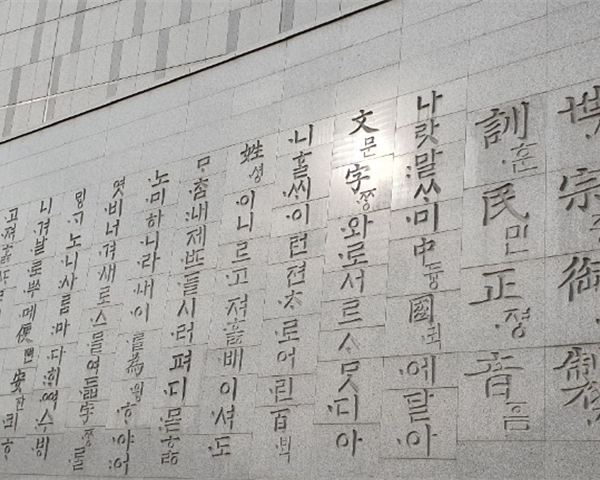 世宗御製
訓훈民민正졍音음
나랏말ᄊᆞ미中듕國귁에달아
文문字ᄍᆞᆼ와로서르ᄉᆞᄆᆞᆺ디아
니ᄒᆞᆯᄊᆡ이런젼ᄎᆞ로어린百ᄇᆡᆨ
姓셩이니르고져ᄒᆞᇙ배이셔도
ᄆᆞᄎᆞᆷ내제ᄠᅳ들시러펴디몯ᄒᆞᇙ
노미하니라내이ᄅᆞᆯ為윙ᄒᆞ야어
엿비너겨새로스믈여듧字ᄍᆞᆼᄅᆞᆯ
ᄆᆡᇰᄀᆞ노니사ᄅᆞᆷ마다ᄒᆡᅇᅧ수ᄫᅵ
니겨날로ᄡᅮ메便뼌安한킈ᄒᆞ
고져ᄒᆞᇙ